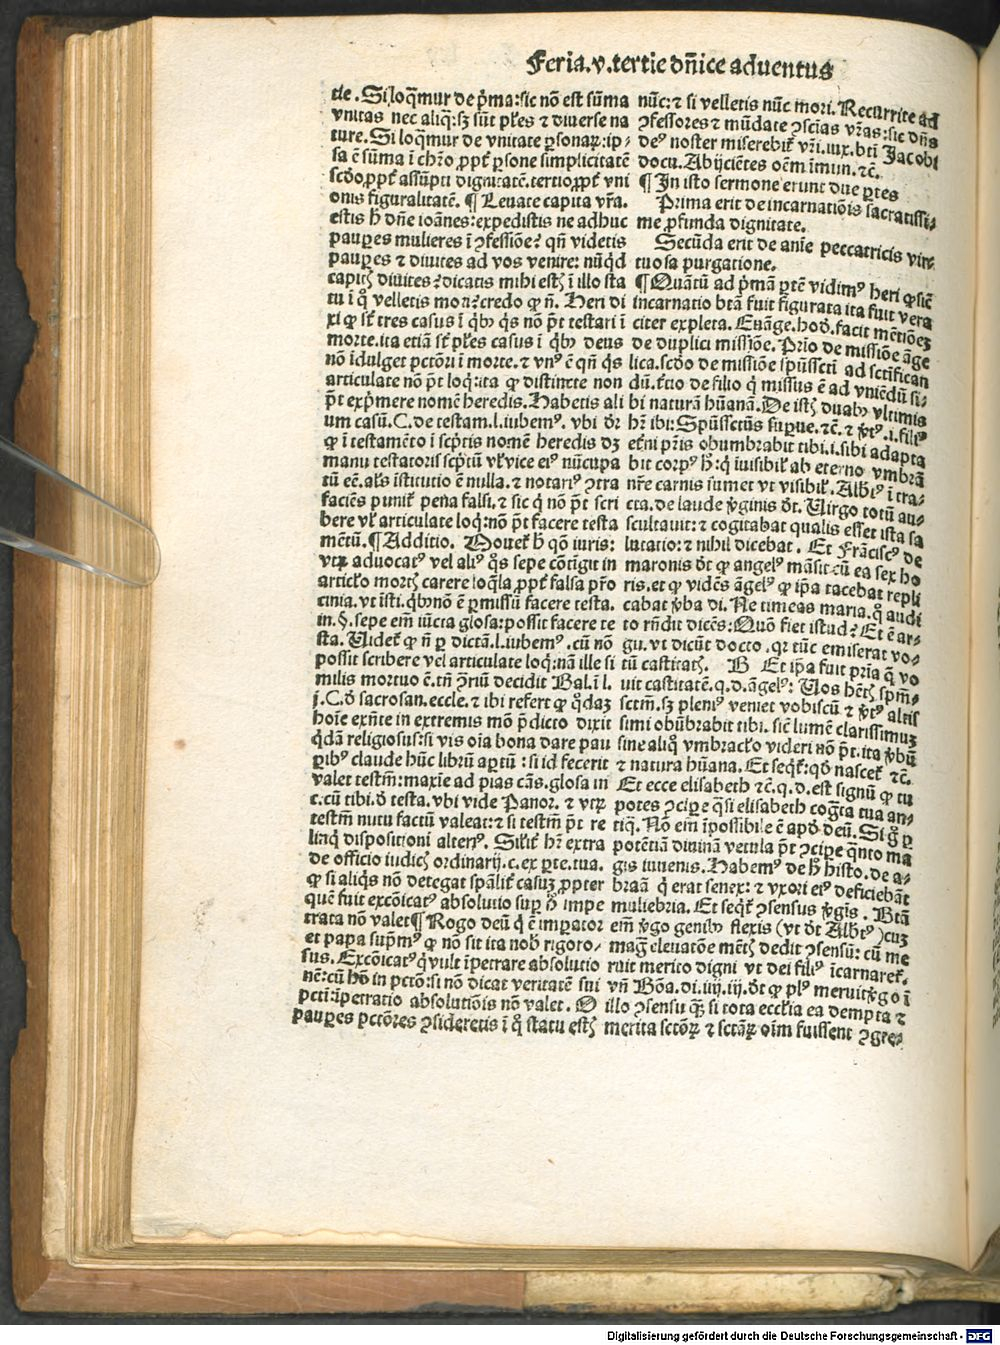 Feria.v.tertie dñice aduentus
tie. Si loq̃mur de p̃ma: sic nõ est sũma
vnitas nec aliq̃: sʒ sũt pl̃es ⁊ diuerse na
ture. Si loq̃mur de vnitate ꝑsonaꝝ: ip-
sa ẽ sũma ĩ chr̃o ꝓpt̃ ꝑsone simplicitatẽ
scďo, ꝓpt̃ assũpti dignitatẽ. tertio, ꝓpt̃ vni
onis figuralitatẽ. ¶ Leuate capita vr̃a.
estis h̃ dñe ioãnes: expedistis ne adhuc
pauꝑes mulieres ĩ ꝯfessiõe? qñ videtis
pauꝑes ⁊ diuites ad vos venire: nũqd
capitꝭ diuites? dicatis mihi estꝭ ĩ illo sta
tu ĩ q̊ velletis mori? credo ꝙ ñ. Heri di
xi ꝙ sũt tres casus ĩ qbꝰ qs nõ p̃t testari ĩ
morte. ita etiã sũt pl̃es casus ĩ qbꝰ deus
nõ ĩdulget pctõri ĩ morte. ⁊ vnꝰ ẽ qñ qs
articulate nõ p̃t loq: ita ꝙ distincte non
p̃t exp̃mere nomẽ heredis. Habetis ali
um casũ. C. de testam. l. iubemꝰ. vbi dr̃
ꝙ ĩ testamẽto ĩ scp̃tis nomẽ heredis dʒ
manu testatoris scp̃tũ vl̃ vice eiꝰ nũcupa
tũ eẽ. al̃s ĩstitutio ẽ nulla. ⁊ notariꝰ ꝯtra
faciẽs punit̃ pena falsi. ⁊ sic q nõ p̃t scri
bere vl̃ articulate loq: nõ p̃t facere testa
mẽtũ. ¶ Additio. Mouet̃ h̃ qõ iuris:
vtꝝ aduocatꝰ vel aliꝰ q̊s sepe cõtigit in
articľo mortꝭ carere loq̃la ꝓpt̃ falsa pr̃o
cinia. vt ĩsti. qbꝰ nõ ẽ ꝑmissũ facere testa.
in. §. sepe em̃ iũcta glosa: possit facere te
sta. Uidet̃ ꝙ ñ ꝑ dictã. l. iubemꝰ. cũ nõ
possit scribere vel articulate loq: nã ille si
milis mortuo ẽ. tñ ꝯriũ decidit Bal. ĩ l.
j. C. ď sacrosan. eccle. ⁊ ibi refert ꝙ q̊dãʒ
hoĩe exñte in extremis mõ p̃dicto dixit
q̊dã religiosus: si vis oĩa bona dare pau
ꝑibꝰ claude hũc librũ aꝑtũ: si id fecerit
valet testm̃: maxĩe ad pias cãs. glosa in
c. cũ tibi. ď testa. vbi vide Panor. ⁊ vtꝝ
testm̃ nutu factũ valeat: ⁊ si testm̃ p̃t re
linq dispositioni alteriꝰ. Sil̃it̃ hr̃ extra
de officio iudicꝭ ordinarij. c. ex ꝑte. tua.
ꝙ si aliqs nõ detegat sp̃alit̃ casuʒ ꝓpter
quẽ fuit excõicatꝰ absolutio suꝑ h̊ impe
trata nõ valet ¶ Rogo deũ q ẽ imꝑator
et papa sup̃mꝰ ꝙ nõ sit ita nob̃ rigoro-
sus. Excõicatꝰ q vult ĩpetrare absolutio
nẽ: cũ hõ in pctõ: si nõ dicat veritatẽ sui
pcti: ĩpetratio absolutiõis nõ valet. O
pauꝑes pctõres ꝯsideretis ĩ q̊ statu estꝭ
nũc: ⁊ si velletis nũc mori. Recurrite ad
ꝯfessores ⁊ mũdate ꝯsciẽs vr̃as: sic dñs
deꝰ noster miserebit̃ vr̃i. iux. bti Jacobi
docu. Abijciẽtes oẽm ĩmun. ⁊c̃.
¶ In isto sermone erunt due ꝑtes
Prima erit de incarnatiõis sacratissi-
me ꝓfunda dignitate.
Secũda erit de anĩe peccatricis vir-
tuosa purgatione.
¶ Quãtũ ad p̃mã ꝑtẽ vidimꝰ heri ꝙ sic̃
incarnatio btã fuit figurata ita fuit vera
citer expleta. Euãge. hoď. facit mẽtiõeʒ
de duplici missiõe. Prĩo de missiõe ãge
lica. scďo de missiõe spũssctĩ ad sctĩfican
dũ. t̃tio de filio q missus ẽ ad vniẽdũ si-
bi naturã hũanã. De istꝭ duabꝰ vltimis
hr̃ ibi: Spũssctũs suꝑue. ⁊c̃. ⁊ v̾tꝰ. i. filiꝰ
et̃ni pr̃is obumbrabit tibi. i. sibi adapta
bit corpꝰ h̃: q ĩuisibil̃ ab eterno vmbrã
nr̃e carnis sumet vt visibil̃. Albtꝰ ĩ tra-
cta. de laude v̾ginis dt. Uirgo totũ au-
scultauit: ⁊ cogitabat qualis esset ista sa
lutatio: ⁊ nihil dicebat. Et Frãciscꝰ de
maronis dt ꝙ angelꝰ mãsit cũ ea sex ho
ris. et ꝙ vidẽs ãgelꝰ ꝙ ip̃a tacebat repli
cabat v̾ba di. Ne timeas maria. q̃ audi
to rñdit dicẽs: Quõ fiet istud? Et ẽ ar-
gu. vt dicũt docto. qꝛ tũc emiserat vo-
tũ castitatꝭ. B Et ip̃a fuit prĩa q̃ vo
uit castitatẽ. q. d. ãgelꝰ: Uos hẽtꝭ spm̃-
sctm̃. sʒ pleniꝰ veniet vobiscũ ⁊ v̾tꝰ altis
simi obũbrabit tibi. sic̃ lumẽ clarissimuʒ
sine aliq̊ vmbracľo videri nõ p̃t. ita v̾bũ
⁊ natura hũana. Et seqt̃: qď nascet̃ ⁊c̃.
Et ecce elisabeth ⁊c̃. q. d. est signũ ꝙ tu
potes ꝯciꝑe q̃si elisabeth cogta tua an-
tiq̃. Nõ em̃ ĩpossibile ẽ apď deũ. Si g̊ ꝑ
potẽtiã diuinã vetula p̃t ꝯciꝑe q̃nto ma
gis iuuenis. Habemꝰ de h̊ histo. de a-
braã q erat senex: ⁊ vxori eiꝰ deficiebãt
muliebria. Et seqt̃ ꝯsensus v̾gis. Btã
em̃ v̾go genibꝰ flexis (vt dt Albtꝰ) cuʒ
mag̃ eleuatõe mẽtꝭ dedit ꝯsensũ: cũ me
ruit merito digni vt dei filiꝰ ĩcarnaret̃.
vñ Bõa. di. iiij. iij. dt ꝙ plꝰ meruit v̾go ĩ
illo ꝯsensu q̃ʒ si tota eccľia ea dempta ⁊
merita sctõꝝ ⁊ sctãꝝ oĩm fuissent ꝯgre-
Digitalisierung gefördert durch die Deutsche Forschungsgemeinschaft - DFG